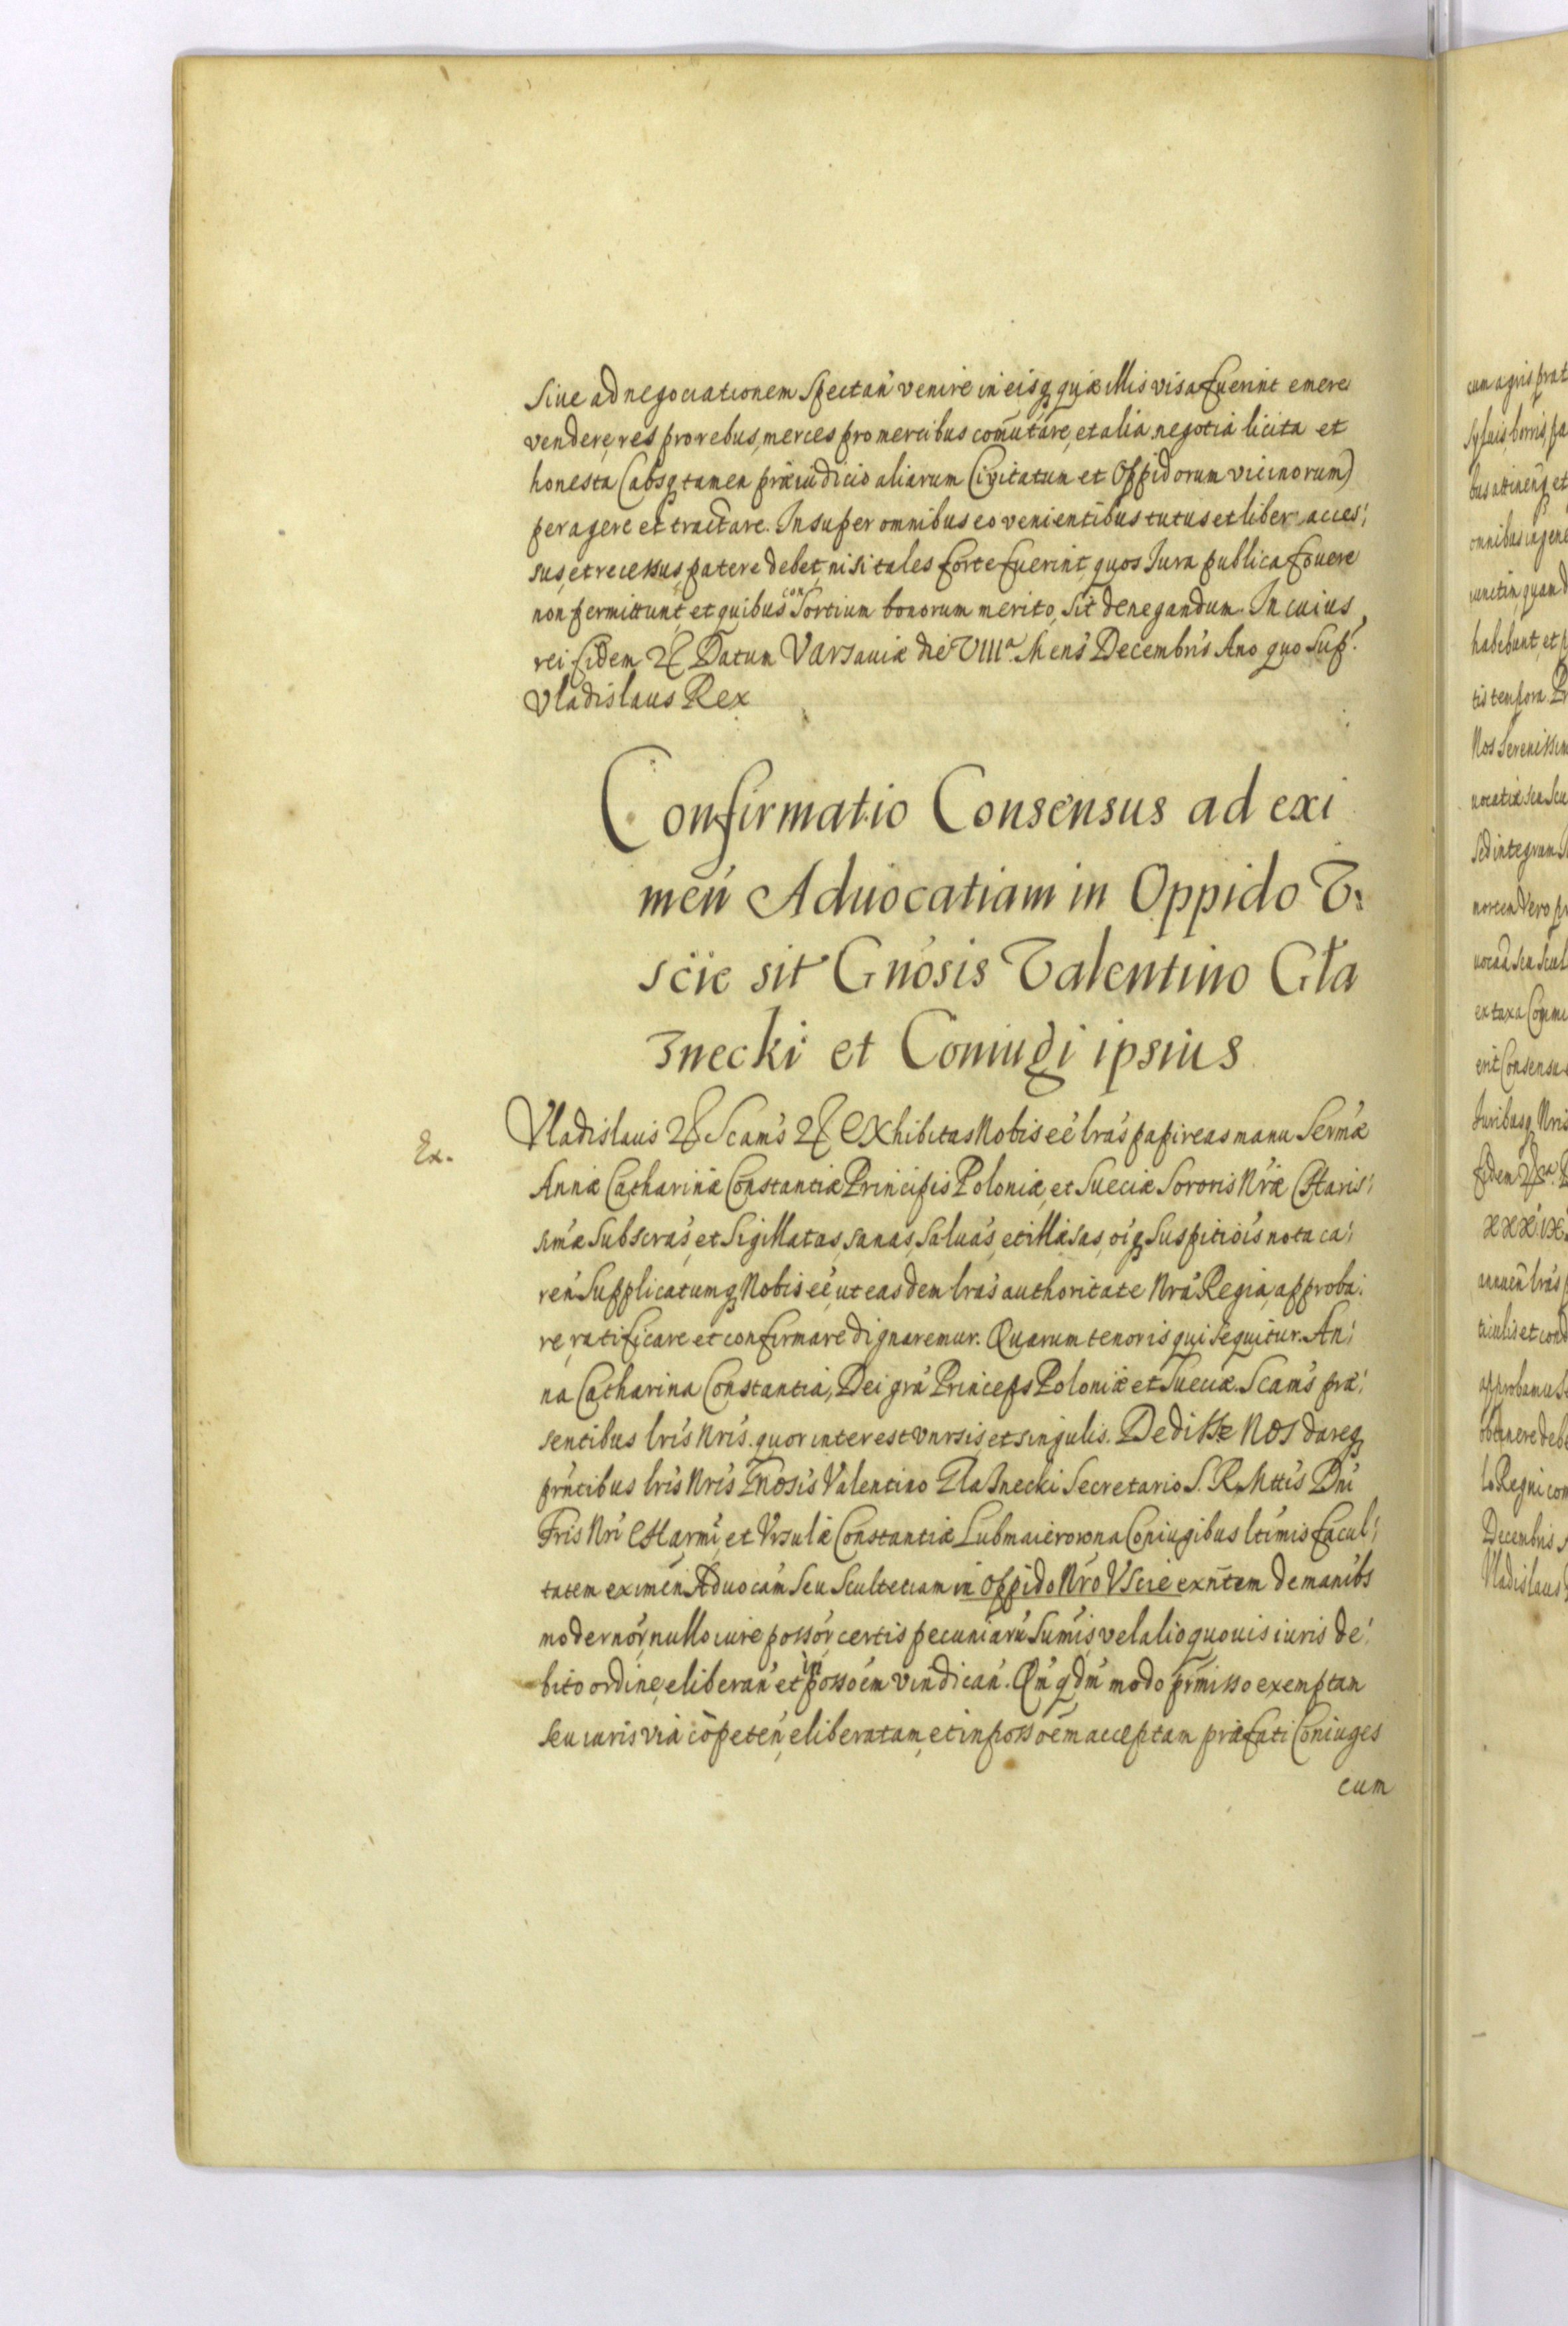 siue ad negociationem spectan̄ venire in eisq̨ quæ illis visa fuerint emere
vendere, res pro rebus, merces pro mercibus com̄utare, et alia negotia licita et
honesta (absq̨ tamen præiudicio aliarum Civitatum et Oppidorum vicinorum)
peragere et tractare. Insuper omnibus eo venientibus tutus et liber acces:
sus, et recessus patere debet, nisi tales forte fuerint, quos Jura publica fouere
non permittunt, et quibus consortium bonorum merito, sit denegandum. In cuius
rei fidem &c Datum Varsauiæ die VIIIa. Mens̄ Decembris Ano quo sup̄.
Vladislaus Rex
Confirmatio Consensus ad exi
men̄ Aduocatiam in Oppido V:
scie sit Gnōsis Valentino Gła
znecki et Coniugi ipsius
Ex.
Vladislaus &c Scam̄s &c Exhibitas Nobis eē lrās papireas manu Serm̄æ
Annæ Catharinæ Constantiæ Principis Poloniæ, et Sueciæ Sororis Nrǣ Charis:
sim̄æ subscrās, et sigillatas, sanas, saluas, et illæsas, oīq̨ suspitioīs nota ca:
ren̄ Supplicatumq̨ Nobis eē, ut easdem lrās authoritate Nrā Regia, approba:
re, ratificare et confirmare dignaremur. Quarum tenor is qui sequitur. An:
na Catharina Constantia, Dei grā Princeps Poloniæ et Sueciæ. Scam̄s præ:
sentibus lrīs Nrīs. quor interest vnr̄sis, et singulis. Dedisse Nos dareq̨
prn̄tibus lrīs Nrīs Gnōsis Valentino Głaznecki Secretario S. R. Mttis Dnī
Fris Nrī Charmī, et Vrsulæ Constantiæ Lubmaierowna Coniugibus ltīmis facul:
tatem eximen̄ Aduocam̄ seu Scultetiam in oppido Nrō Vscie exn̄tem de manibs
modernor̄, nullo iure possor̄, certis pecuniarū sum̄is, vel alio quouis iuris de:
bito ordine, eliberan̄ et in possoēm vindican̄. Qn̄ q̨dm̄ modo prm̄isso exemptam
seu iuris via cōpeten̄, eliberatam, et in possoēm acceptam præfati Coniuges
cum